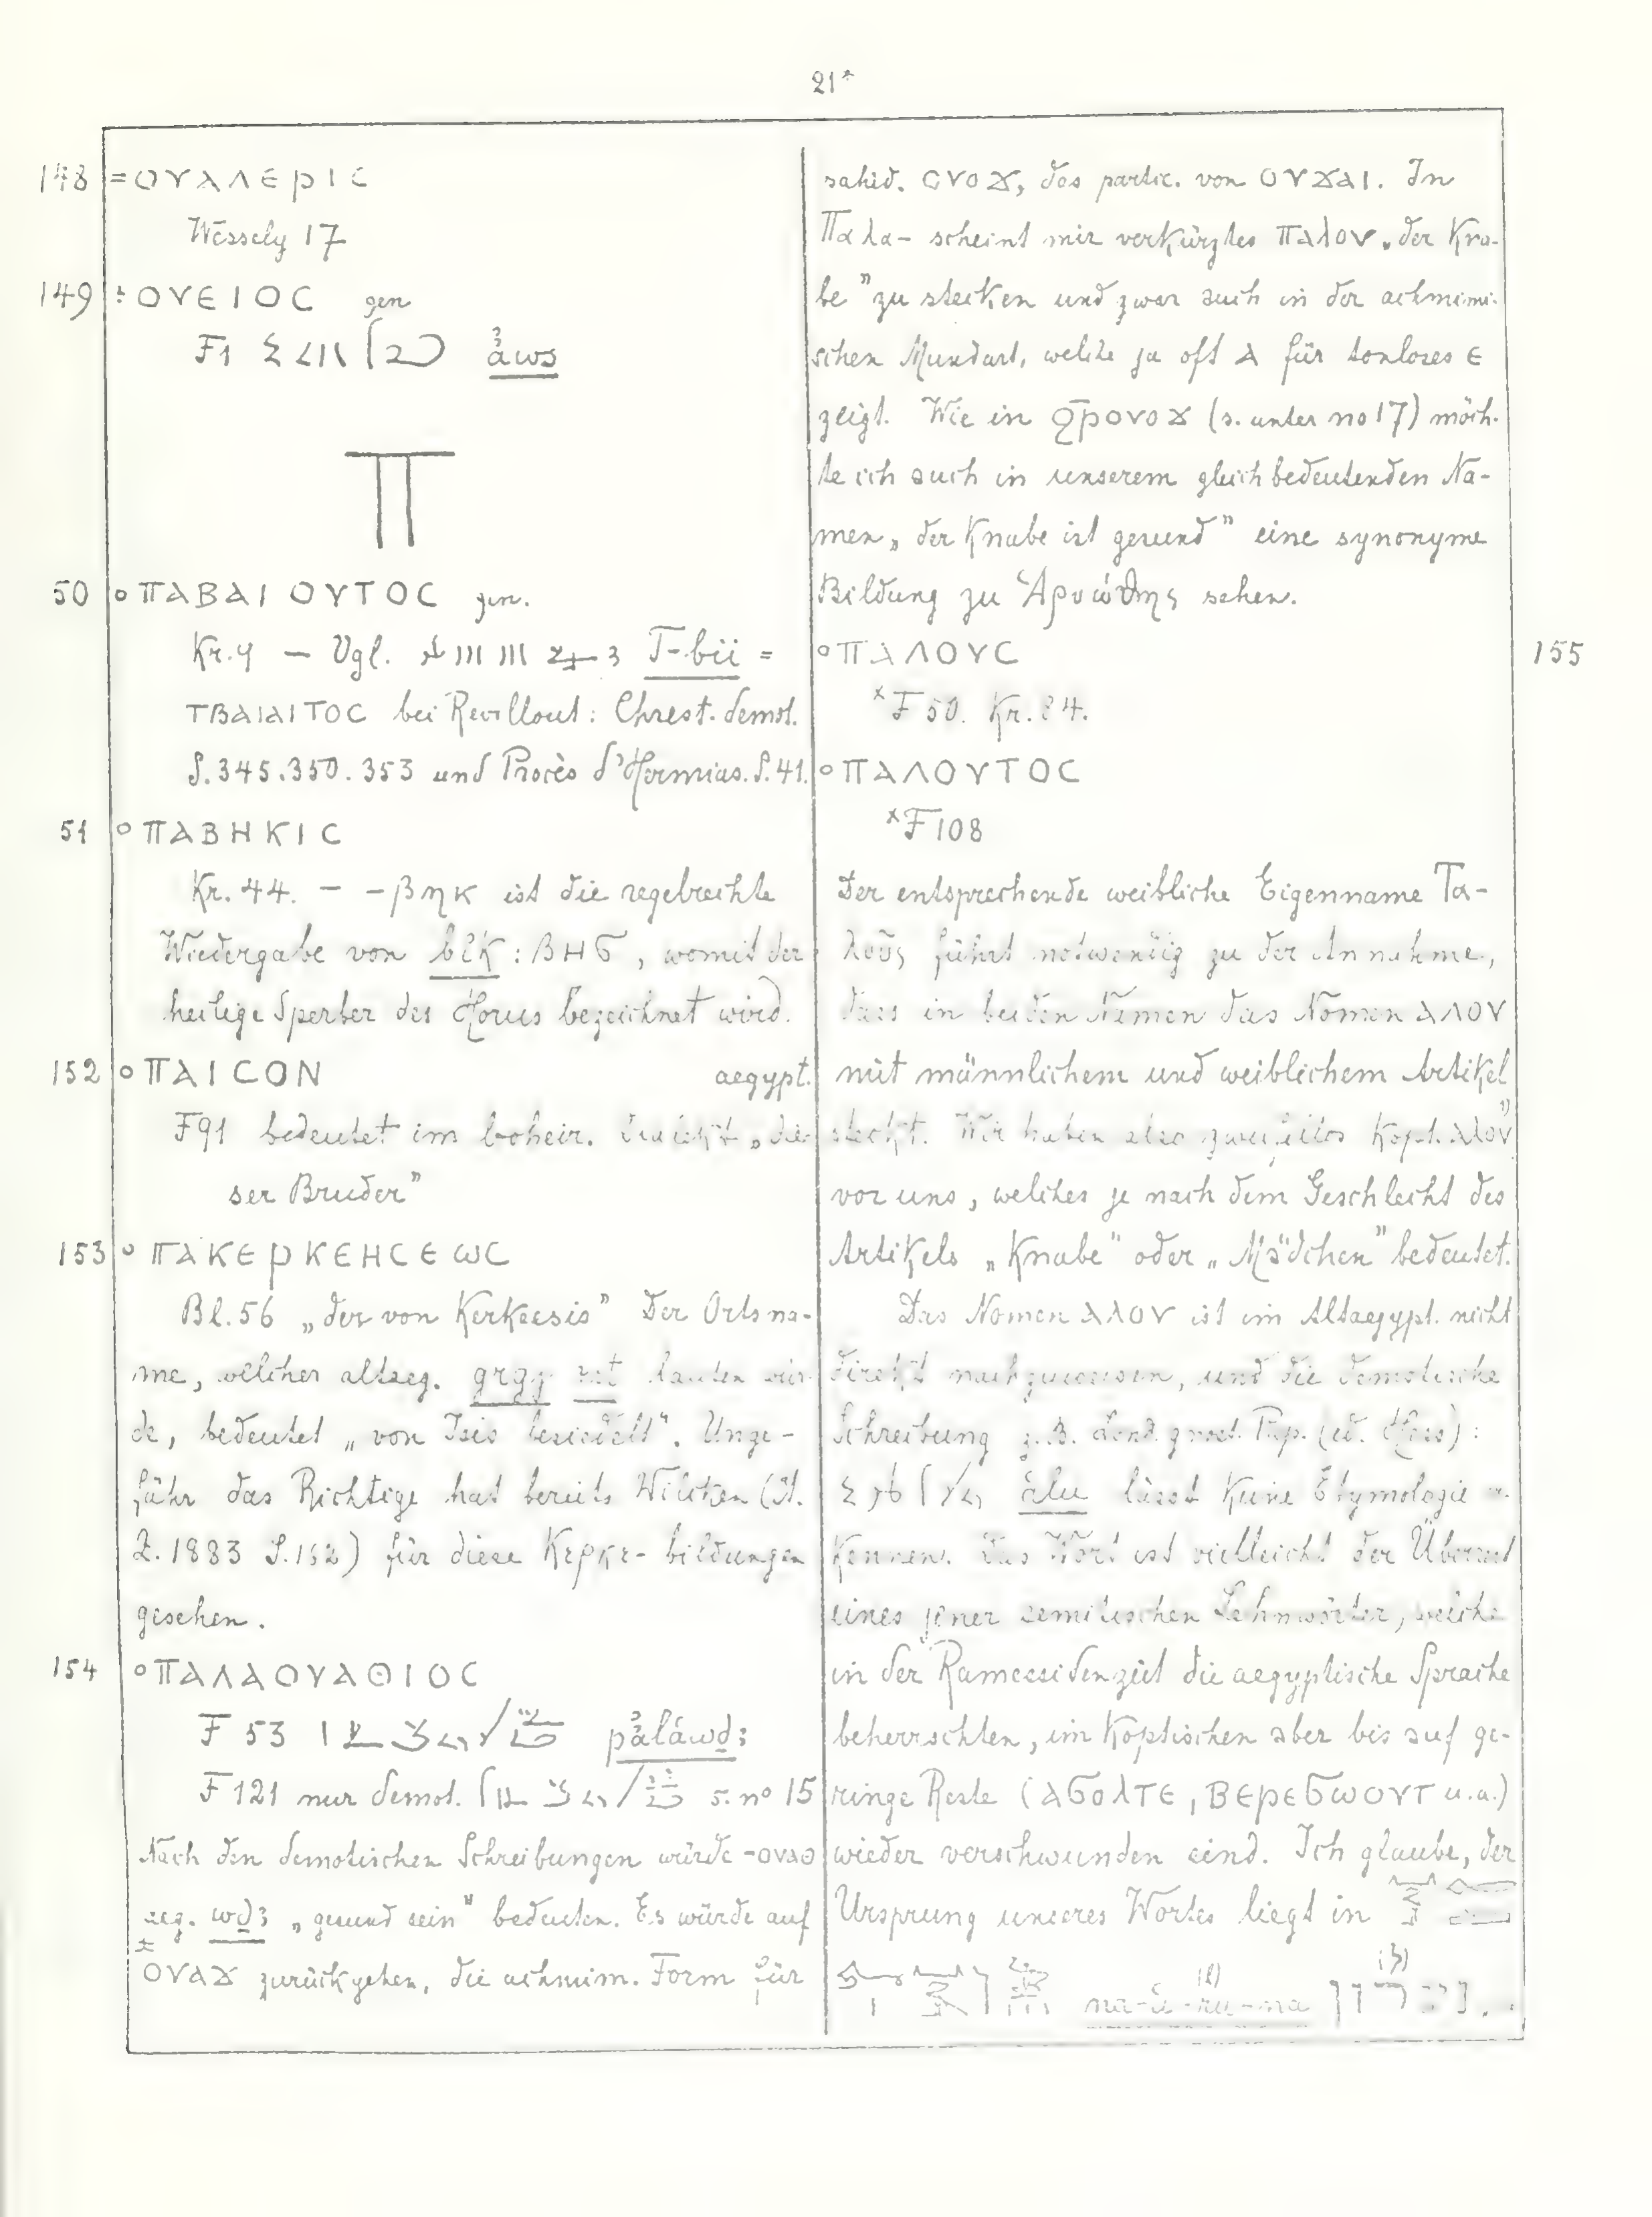 21*
148 = ΟΥΑΛΕΡΙϹ
Wessely 17
149 : ΟΥΕΙΟϹ gen
F1 ꜣȧws
Π
50 ° ΠΑΒΑΙΟΥΤΟϹ gen.
Kr. 4 — Vgl. T-bii =
ΤΒΑΙΑΙΤΟϹ bei Revillout: Chrest. demot.
S. 345. 350. 353 und Procès d'Hermias. S. 41.
51 ° ΠΑΒΗΚΙϹ
Kr. 44. — -βηκ ist die regelrechte
Wiedergabe von bik : ⲂⲎϬ, womit der
heilige Sperber des Horus bezeichnet wird.
152 ° ΠΑΙϹΟΝ aegypt.
F91 bedeutet im boheir. Dialekt „die
ser Bruder"
153 ° ΠΑΚΕΡΚΕΗϹΕΩϹ
Bl. 56 „der von Kerkeesis" Der Ortsna-
me, welcher altaeg. grgy lauten wür-
de, bedeutet „von Isis besiedelt". Unge-
fähr das Richtige hat bereits Wilcken (Ä.
Z. 1883 S. 162) für diese Κερκε- bildungen
gesehen.
154 ° ΠΑΛΑΟΥΑΘΙΟϹ
F 53 pꜣȧláwdꜣ
F 121 nur demot. s. no 15
Nach den demotischen Schreibungen würde -ουαθ
aeg. wdꜣ „gesund sein" bedeuten. Es würde auf
ⲞⲨⲀϪ zurückgehen, die achmim. Form für
sahid. ⲞⲨⲞϪ, das partic. von ⲞⲨϪⲀⲒ. In
Παλα- scheint mir verkürztes ⲠⲀⲖⲞⲨ „der Kna-
be" zu stecken und zwar auch in der achmimi-
schen Mundart, welche ja oft ⲁ für tonloses ⲉ
zeigt. Wie in ϨⲢⲞⲨⲞϪ (s. unter no 17) möch-
te ich auch in unserem gleichbedeutenden Na-
men „der Knabe ist gesund" eine synonyme
Bildung zu Ἁρυώθης sehen.
° ΠΑΛΟΥϹ 155
*F 50. Kr. 34.
° ΠΑΛΟΥΤΟϹ
*F 108
Der entsprechende weibliche Eigenname Τα-
λοῦς führt notwendig zu der Annahme,
dass in beiden Namen das Nomen ⲀⲖⲞⲨ
mit männlichem und weiblichem Artikel
steckt. Wir haben also zweifellos kopt. ⲀⲖⲞⲨ 1)
vor uns, welches je nach dem Geschlecht des
Artikels „Knabe" oder „Mädchen" bedeutet.
Das Nomen ⲀⲖⲞⲨ ist im Altaegypt. nicht
direkt nachzuweisen, und die demotische
Schreibung z. B. Lond. gnost. Pap. (ed. Hess):
ȧlu lässt keine Etymologie er-
kennen. Das Wort ist vielleicht der Überrest
eines jener semitischen Lehnwörter, welche
in der Ramessidenzeit die aegyptische Sprache
beherrschten, im Koptischen aber bis auf ge-
ringe Reste (ⲀϬⲞⲖⲦⲈ, ⲂⲈⲢⲈϬⲰⲞⲨⲦ u.a.)
wieder verschwunden sind. Ich glaube, der
Ursprung unseres Wortes liegt in